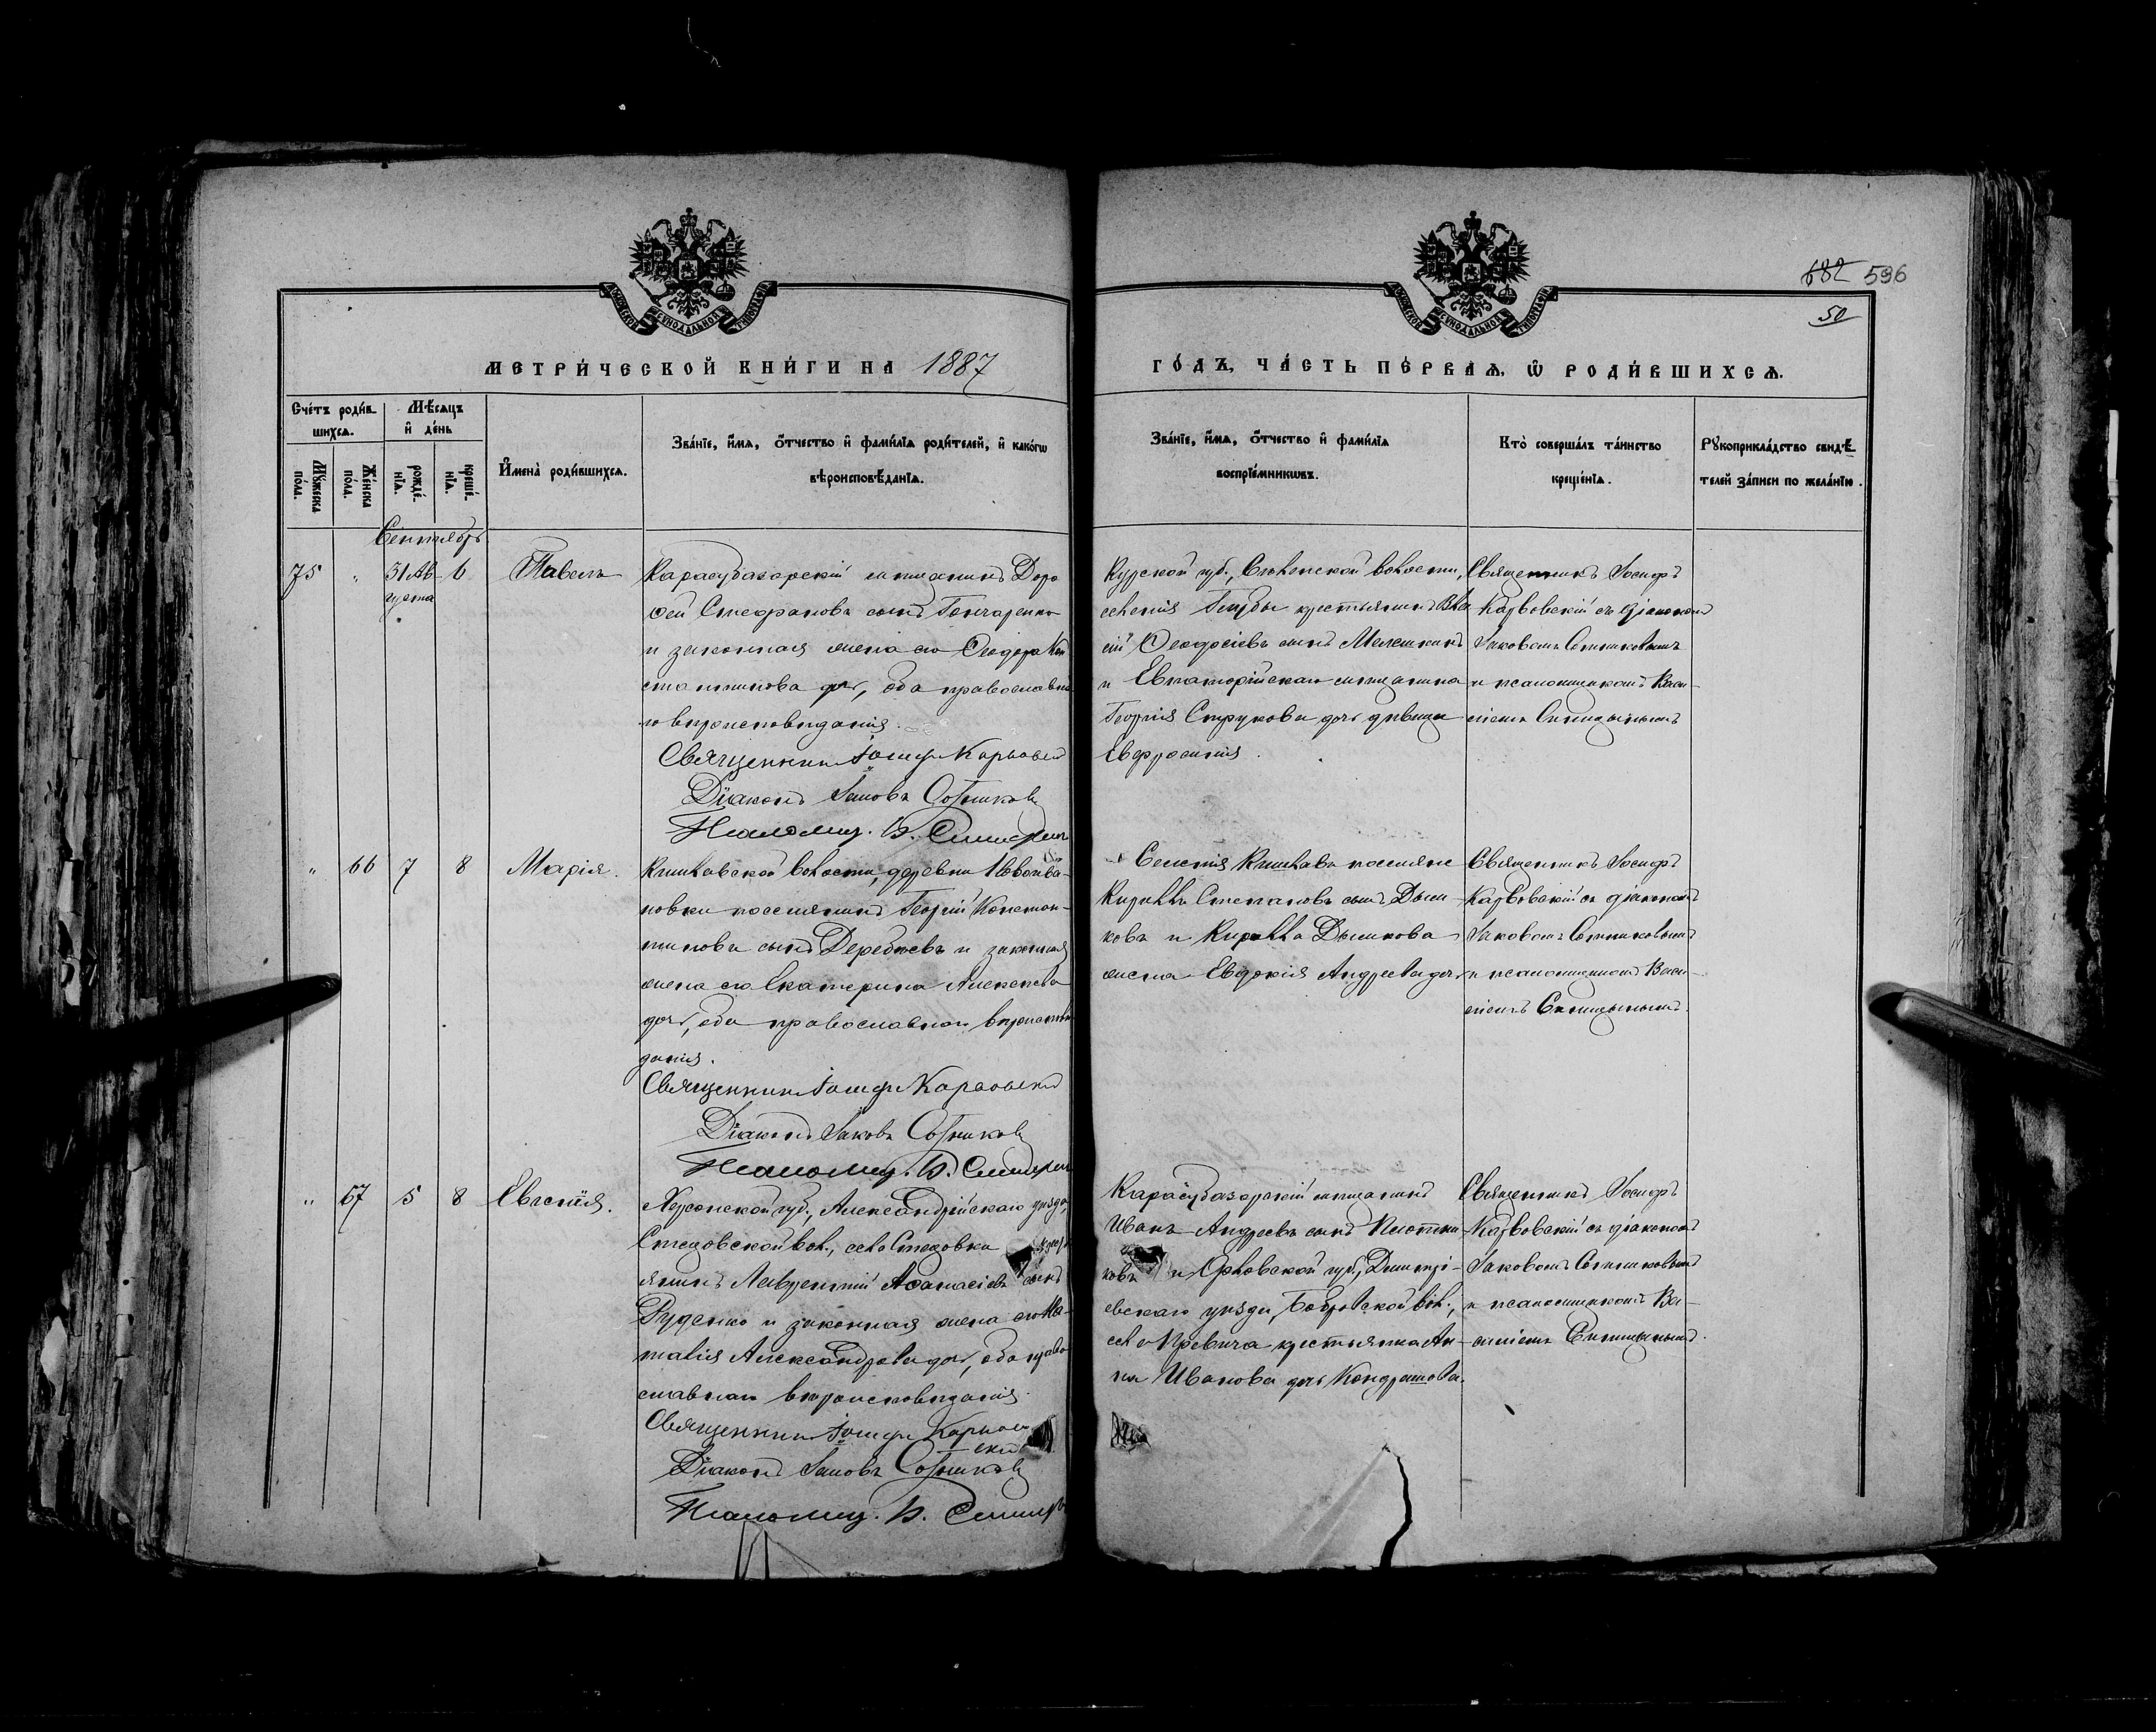 682 596
50
МЕТРИ́ЧЕСКОЙ КНИ́ГИ НА 1887
ГО́ДЪ, ЧА́СТЬ ПЕ́РВАѦ, Ѡ РОДИ́ВШИХСѦ.
Сче́тъ роди́в
шихсѧ.
Мѣ́сѧцъ
и҆ де́нь
Мꙋ́жеска
по́ла.
Же́нска
по́ла.
рожде́-
нїѧ.
креще́-
нїѧ.
И҆мена̀ роди́вшихсѧ.
Зва́нїе, и҆́мѧ, ѻ҆́тчество и҆ фами́лїѧ роди́телей, и҆ како́гѡ
вѣроисповѣ́данїѧ.
Зва́нїе, и҆́мѧ, ѻ҆́тчество и҆ фами́лїѧ
воспрїе́мникѡвъ.
Кто̀ соверша́лъ та́инство
креще́нїѧ.
Рꙋкоприкла́дство свидѣ́-
телей за́писи по жела́нїю.
Сентябрь
75 " 31 Ав- 6 Павелъ
густа
Карасубазарскій мѣщанинъ Доро
ѳей Стефановъ сынъ Гончаренко
и законная жена его Ѳеодора Кон
стантинова дочь, оба православна
го вѣроисповѣданія.
Священникъ Іосифъ Карповскій
Діаконъ Іаковъ Сотниковъ
Псаломщ. В.
Курской губ., волости,
селенія крестьянинъ Вла
сій Ѳеодосіевъ сынъ Мелешкинъ
и Евпаторійскаго мѣщанина
Георгія Струкова дочь дѣвица
Евфросинія.
Священникъ Іосифъ
Карповскій съ діакономъ
Іаковомъ Сотниковымъ
и псаломщикомъ Васи-
ліемъ
" 66 7 8 Марія.
волости, деревни Ивано-
новки поселянинъ Георгій Констан-
тиновъ сынъ и законная
жена его Екатерина Алексѣева
дочь, оба православнаго вѣроисповѣ
данія.
Священникъ Іосифъ Карповскій
Діаконъ Іаковъ Сотниковъ
Псаломщ. В.
Селенія поселяне
Кириллъ Степановъ сынъ Дыш-
ковъ и Кирилла Дышкова
жена Евдокія Андреева дочь
Священникъ Іосифъ
Карповскій съ діакономъ
Іаковомъ Сотниковымъ
и псаломщикомъ Васи-
ліемъ
" 67 5 8 Евгенія.
Херсонской губ., Александрійскаго уѣзда,
Стецовской вол., села Стецовки крестъ
янинъ Лаврентій Аѳанасіевъ сынъ
Руденко и законная жена его На-
талія Александрова дочь, оба право
славнаго вѣроисповѣданія.
Священникъ Іосифъ Карпов
скій
Діаконъ Іаковъ Сотниковъ
Псаломщ. В.
Карасубазарскій мѣщанинъ
Иванъ Андреевъ сынъ Плотни
ковъ и Орловской губ., Дмитрі-
евскаго уѣзда, вол.,
села крестьянка Ан-
на Иванова дочь Кондрашова.
Священникъ Іосифъ
Карповскій съ діакономъ
Іаковомъ Сотниковымъ
и псаломщикомъ Ва-
силіемъ